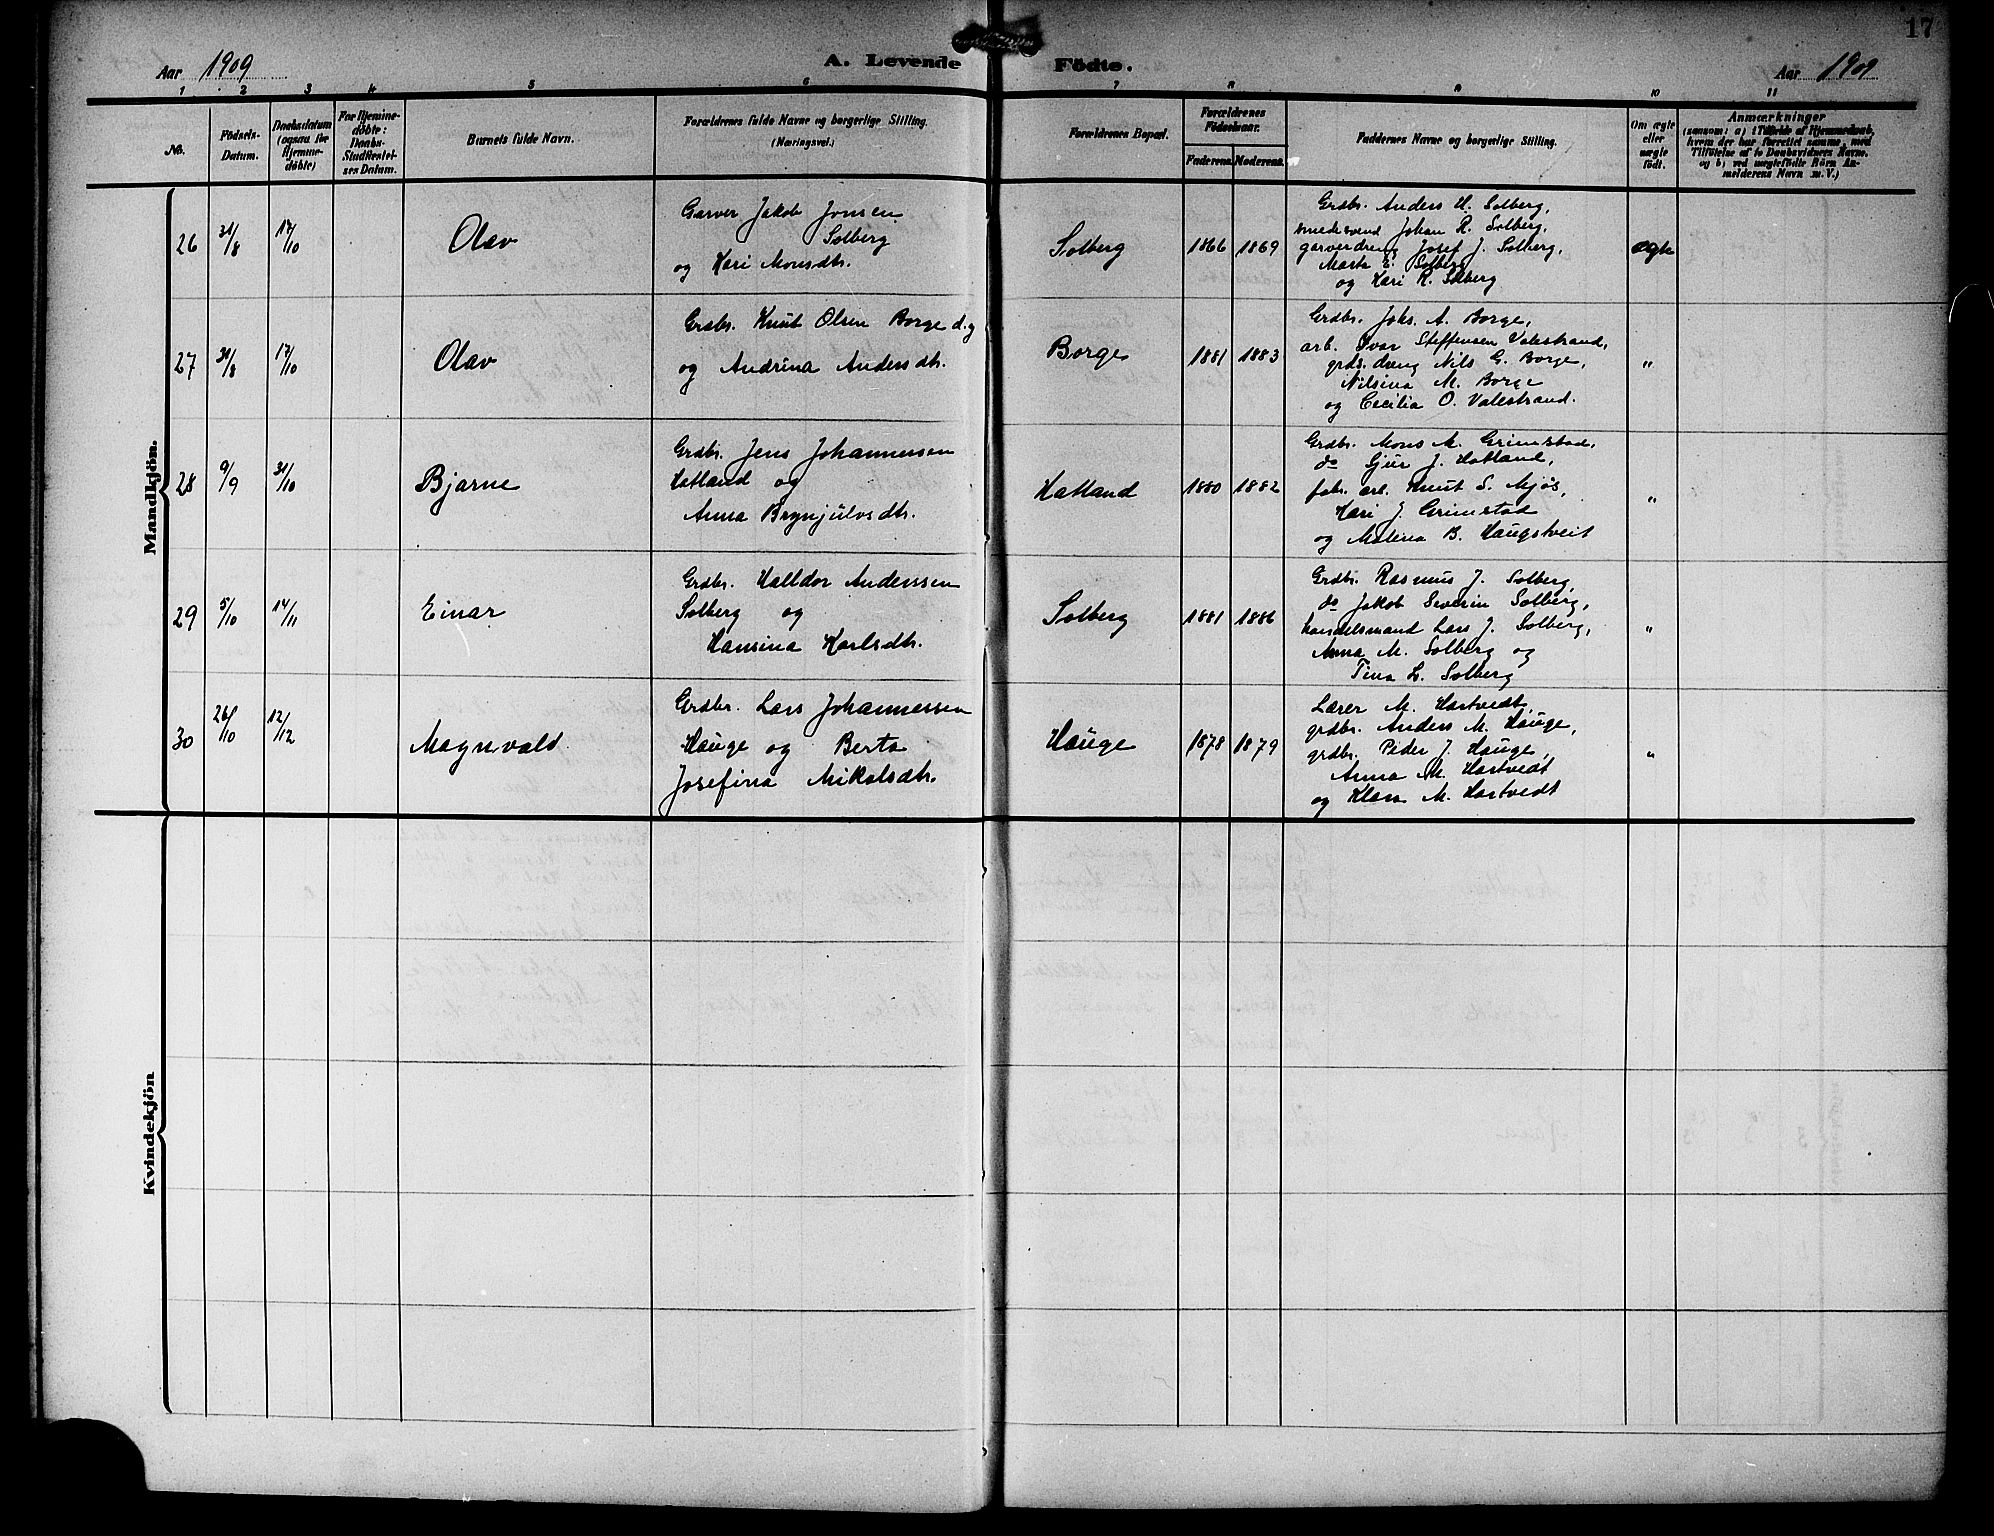 17
Aar 1909
A. Levende Födte.
Aar 1909
1 2 3 4 5 6 7 8 9 10 11
No.
Födsels-Datum.
Daabsdatum (ogsaa for Hjemme-döbte)
For Hjemme-döbte: Daabs-Stadfæstel-ses Datum.
Barnets fulde Navn.
Forældrenes fulde Navne og borgerlige Stilling.
(Næringsvei.)
Forældrenes Bopæl.
Forældrenes Födselsaar.
Faderens. Moderens.
Faddernes Navne og borgerlige Stilling.
Om ægte eller uægte född.
Anmærkninger
(saasom: a) i Tilfælde af Hjemmedaab,
hvem der har forrettet samme, med
Tilföielse af to Daabsvidners Navne.
og b) ved uægtefödte Börn An-
melderens Navn m. V.)
Mandkjön.
26 31/8 17/10 Olav
Garver Jakob Jonsen
Solberg
og Kari Monsdtr.
Solberg 1866 1869
Grdbr. Anders H. Solberg,
smedsvend Johan R. Solberg,
garverdreng Josef J. Solberg,
Marta E. Solberg
og Kari R. Solberg
ægte
27 31/8 17/10 Olav
Grdbr. Knut Olsen Borge d.y
og Andrina Andersdtr.
Borge 1881 1883
Grdbr. Johs. A. Borge,
arb. Ivar Steffensen Valestrand,
grds. dreng Nils G. Borge,
Nilsina M. Borge
og Cecilia O. Valestrand.
"
28 9/9 31/10 Bjarne
Grdbr. Jens Johannessen
Hatland og
Anna Brynjulvsdtr.
Hatland 1880 1882
Grdbr. Mons M. Grimstad,
do Gjur J. Hatland,
fabr. arb. Knut S. Mjøs,
Kari J. Grimstad
og Malena B. Haugstveit
"
29 5/10 14/11 Einar
Grdbr. Halldor Anderssen
Solberg og
Hansina Karlsdtr.
Solberg 1881 1886
Grdbr. Rasmus J. Solberg,
do Jakob Severin Solberg,
handelsmand Lars J. Solberg,
Anna M. Solberg og
Tina L. Solberg
"
30 26/10 12/12 Magnvald
Grdbr. Lars Johannessen
Hauge og Berta
Josefina Mikalsdtr.
Hauge 1878 1879
Lærer M. Hartvedt,
grdbr. Anders M. Hauge,
grdbr. Peder J. Hauge,
Anna M. Hartvedt
og Klara M. Hartvedt
"
Kvindekjön